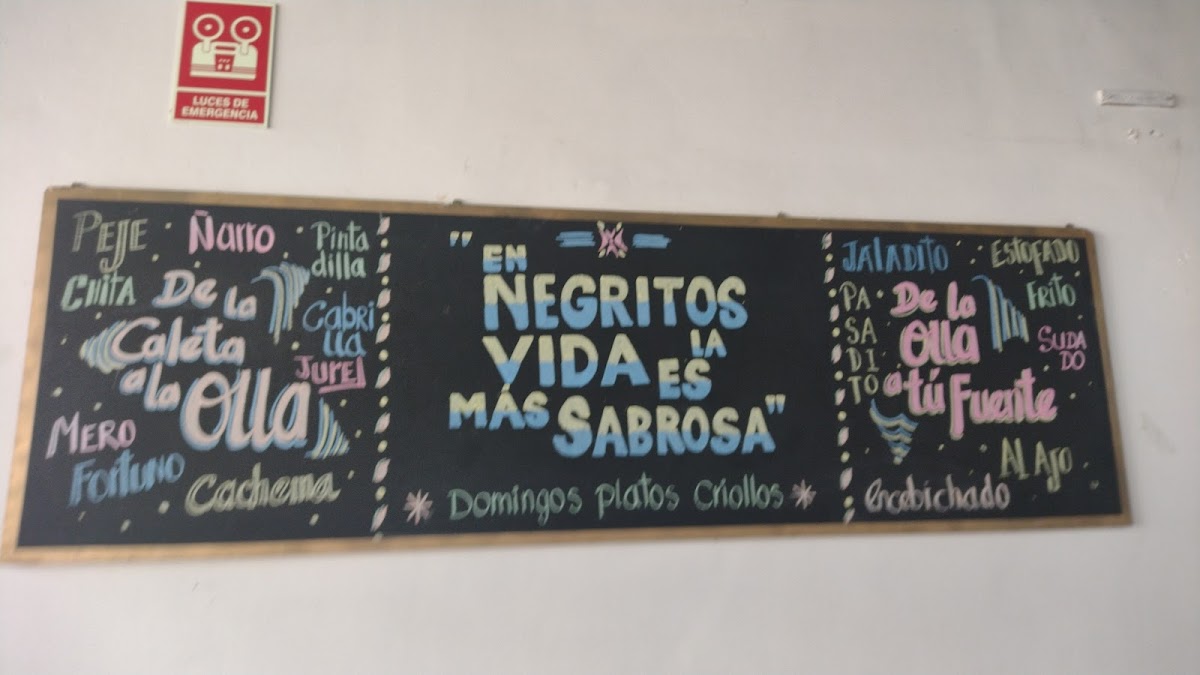 LUCES DE
EMERGENCIA
PEJE
Ñarro
Pinta
dilla
CHITA
De la
Caleta
a la Olla
Cabri
lla
Jurel
MERO
Fortuno
Cachema
"EN
NEGRITOS
VIDA LA
ES
MÁS SABROSA"
Domingos Platos Criollos
JALADITO
ESTOFADO
PA
SA
DI
TO
De la
Olla
a tú Fuente
FRITO
SUDA
DO
Al Ajo
encabichado